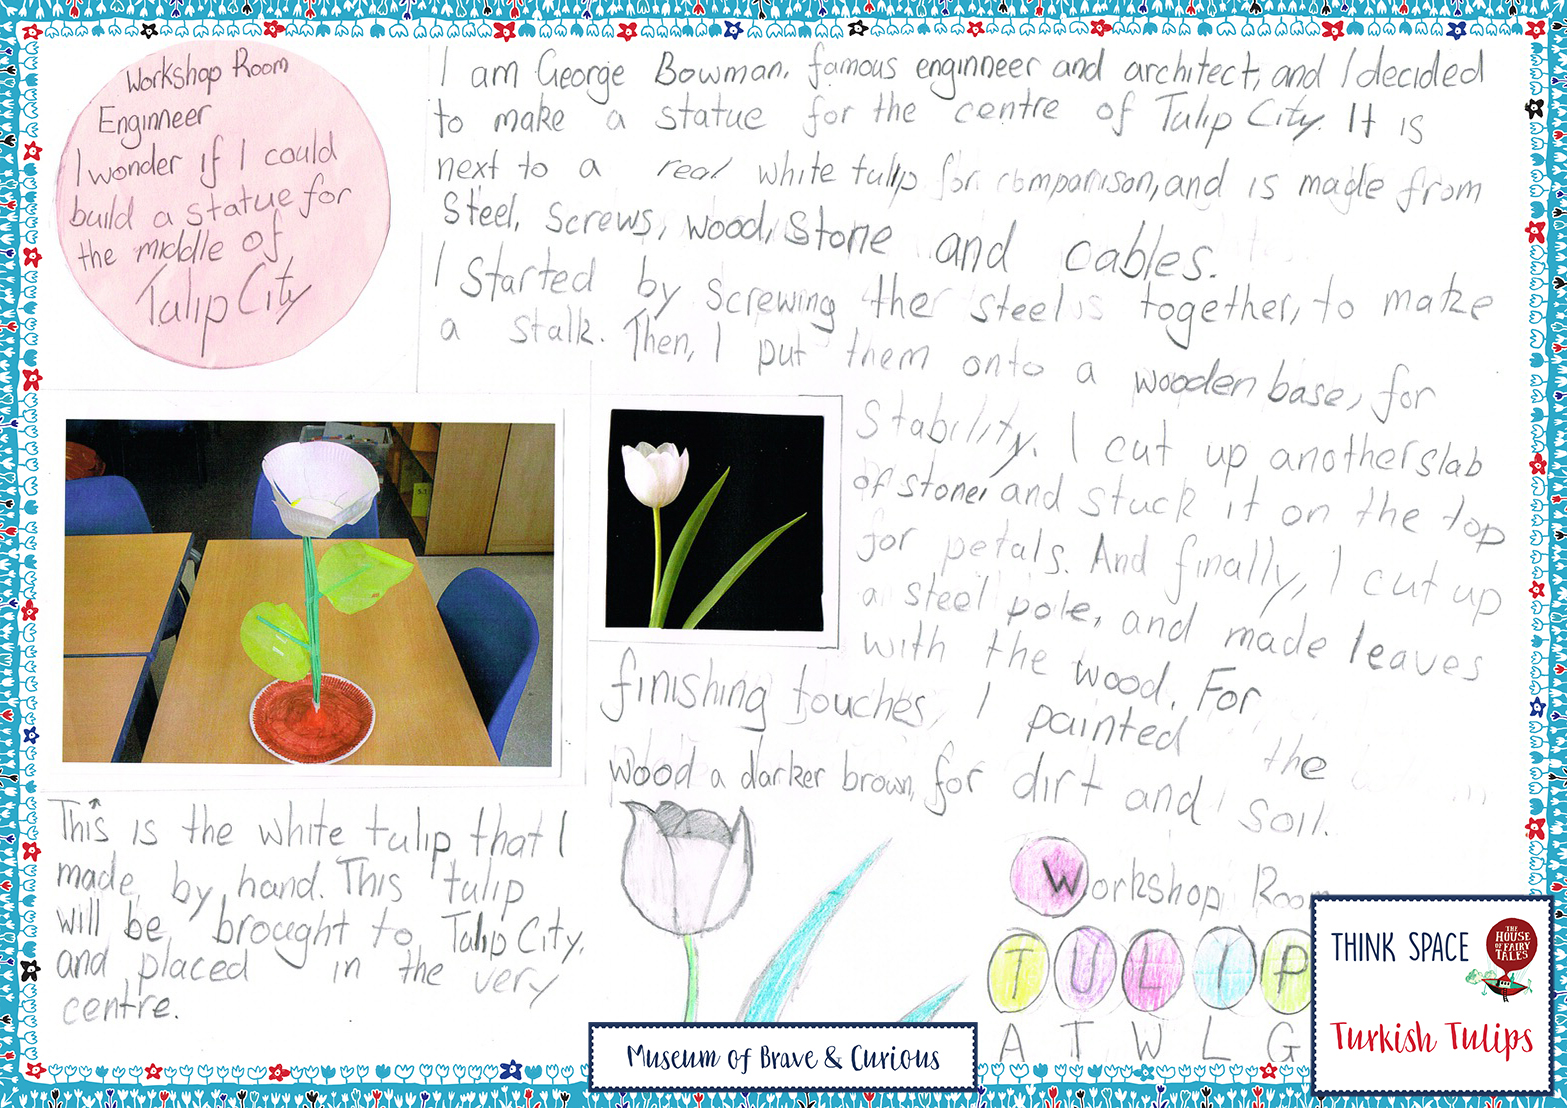 Workshop Room
Enginneer
I wonder if I could
build a statue for
the middle of
Tulip City
I am George Bowman, famous enginneer and architect, and I decided
to make a statue for the centre of Tulip City. It is
next to a real white tulip for comparison, and is made from
Steel, screws, wood, stone and cables.
I started by screwing the steel together, to make
a stalk. Then, I put them onto a wooden base, for
stability. I cut up another slab
of stone, and stuck it on the top
for petals. And finally, I cut up
a steel pole, and made leaves
with the wood. For
finishing touches, I painted the
wood a darker brown, for dirt and soil.
This is the white tulip that I
made by hand. This tulip
will be brought to Tulip City,
and placed in the very
centre.
Workshop Room
TULIP
A T W L G
Museum of Brave & Curious
THINK SPACE
THE HOUSE OF FAIRY TALES
Turkish Tulips